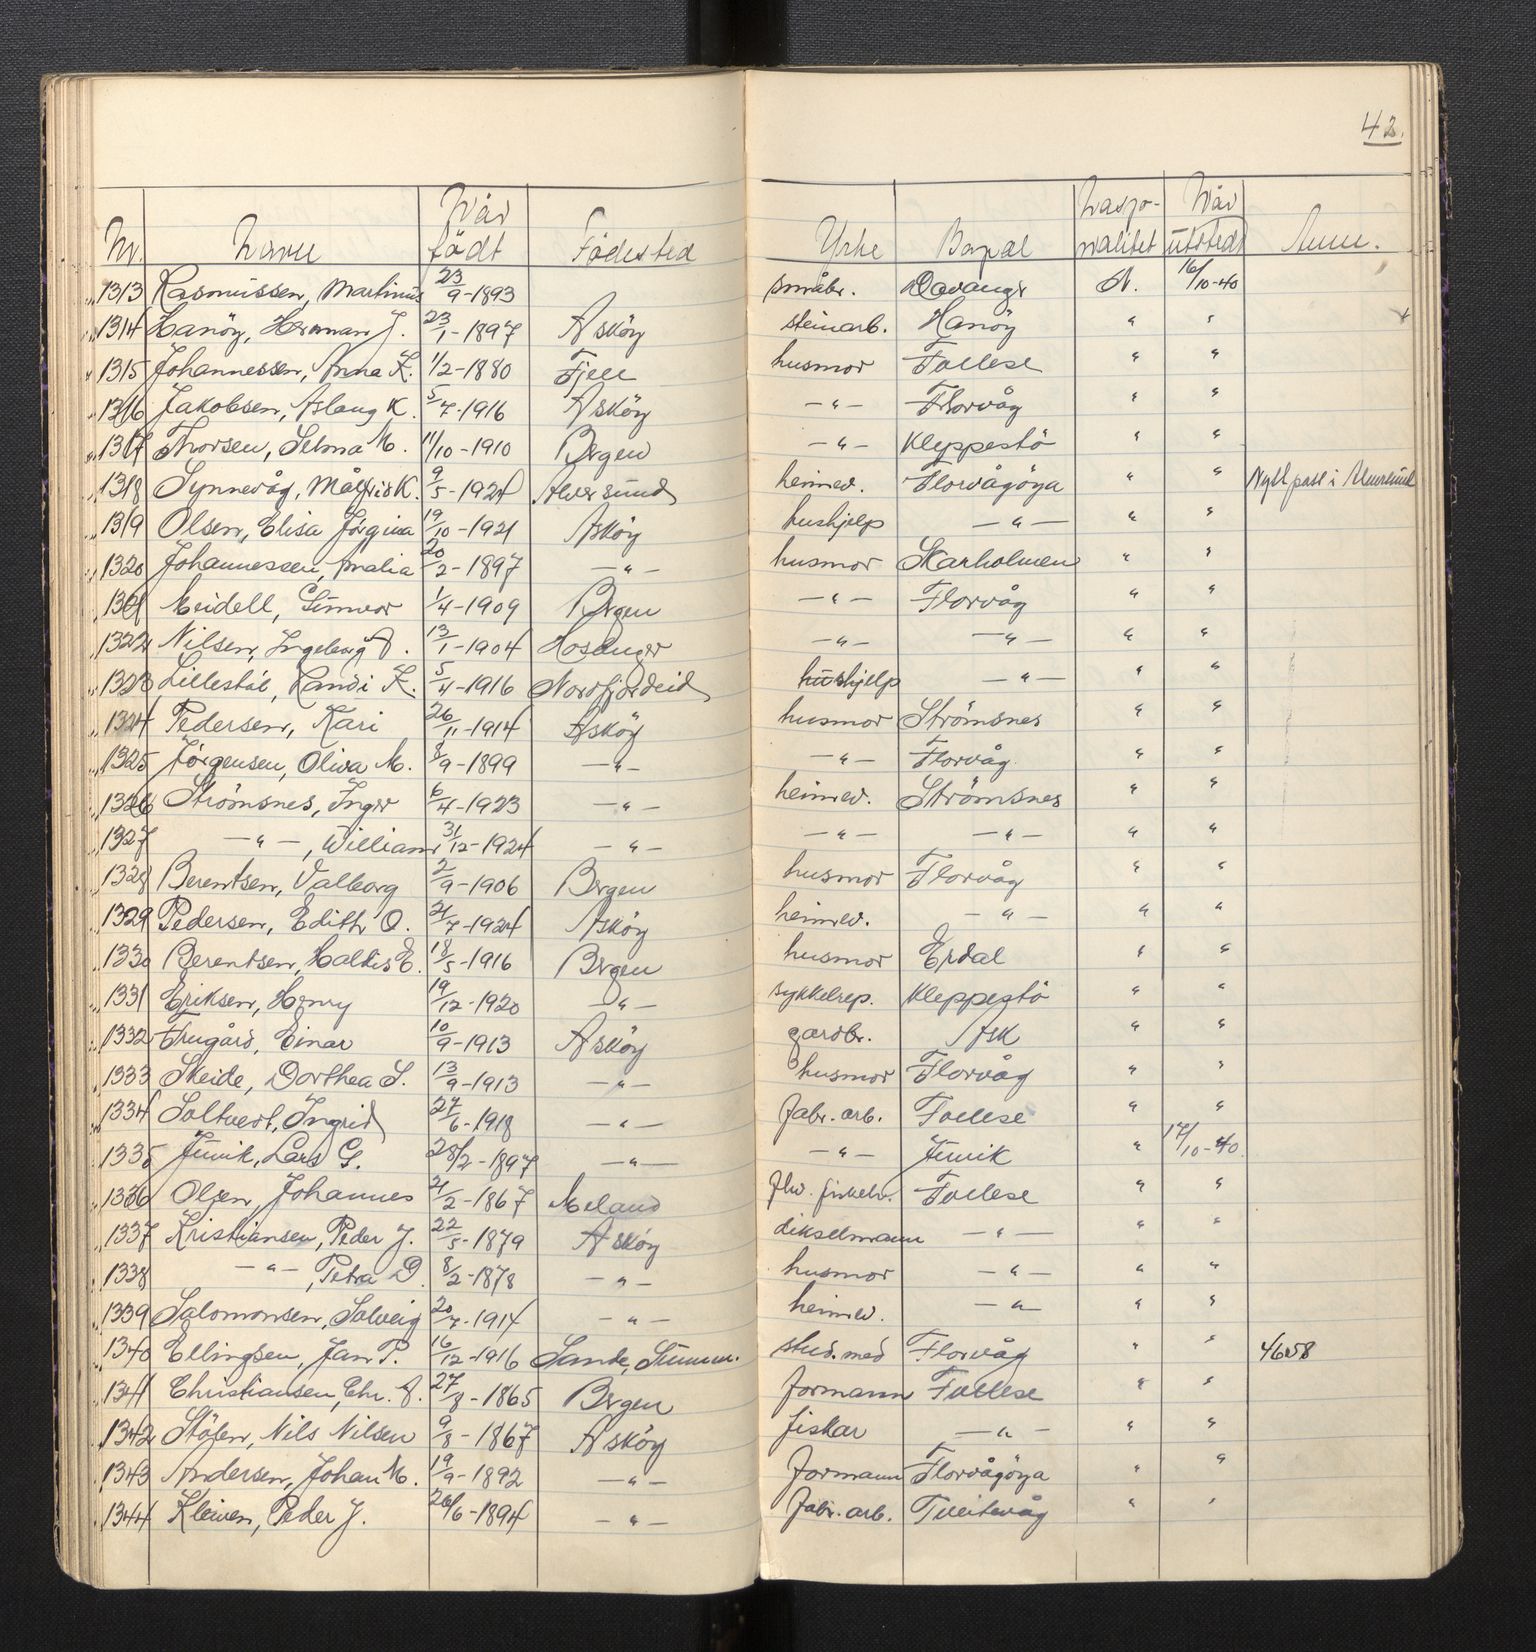 42.
Nr. Navn Når födt Födested Yrke Bopæl Nasjonalitet Når utstedt Anm.
1313 Rasmussen, Martinus 23/9-1893 småbr. Davanger N. 16/10-40
1314 Hanöy, Herman J. 23/1-1897 Asköy steinarb. Hanöy " "
1315 Johannessen, Anna K. 1/2-1880 Fjell husmor Follese " "
1316 Jakobsen, Aslaug K. 5/7-1916 Asköy -"- Florvåg " "
1317 Thorsen, Selma M. 11/10-1910 Bergen -"- Kleppestö " "
1318 Synnevåg, Målfrid K. 9/5-1924 Alversund heimev. Florvågöya " " Nytt pass i
1319 Olsen, Elisa Jörgina 19/10-1921 Asköy hushjelp -"- " "
1320 Johannessen, Amalia 20/2-1897 -"- husmor Skarholmen " "
1321 Meidell, Gunvor 1/4-1909 Bergen -"- Florvåg " "
1322 Nilsen, Ingeborg A. 13/1-1904 Hosanger -"- -"- " "
1323 Lillestöl, Randi K. 5/4-1916 Nordfjordeid hushjelp -"- " "
1324 Pedersen, Kari 26/11-1914 Asköy husmor Strömsnes " "
1325 Jörgensen, Oliva M. 8/9-1899 -"- -"- Florvåg " "
1326 Strömsnes, Inger 6/4-1923 -"- heimev. Strömsnes " "
1327 -"-, William 31/12-1924 -"- -"- -"- " "
1328 Berentsen, Valborg 2/9-1906 Bergen husmor Florvåg " "
1329 Pedersen, Edith O. 21/7-1924 Asköy heimev. -"- " "
1330 Berentsen, Haldis E. 18/5-1916 Bergen husmor Erdal " "
1331 Eriksen, Henry 19/12-1920 -"- sykkelrep. Kleppestö " "
1332 Trugård, Einar 10/9-1913 Asköy gardbr. Ask " "
1333 Skeide, Dorthea S. 13/9-1913 -"- husmor Florvåg " "
1334 Soltvedt, Ingrid 27/6-1918 -"- fabr. arb. Follese " "
1335 Juvik, Lars G. 28/2-1897 -"- -"- Juvik " 17/10-40.
1336 Olsen, Johannes 21/2-1867 Meland fhv. fiskehr. Follese " "
1337 Kristiansen, Peder J. 22/5-1879 Asköy dikselmann -"- " "
1338 -"-, Petra D. 8/2-1878 -"- husmor -"- " "
1339 Salomonsen, Solveig 20/7-1914 -"- heimev. -"- " "
1340 Ellingsen, Jan P. 16/12-1916 Sande, Sunnm. stud. med Florvåg " " 46058
1341 Christiansen, Chr. A. 27/8-1865 Bergen formann Follese " "
1342 Stölen, Nils Nilsen 9/8-1867 Asköy fiskar -"- " "
1343 Andersen, Johan M. 19/9-1892 -"- formann Florvågöya " "
1344 Kleiven, Peder J. 26/6-1894 -"- fabr. arb. Tveitevåg " "